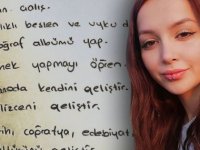 an. çalış.
ıklı beslen ve uyku d
oğraf albümü yap.
mek yapmayı öğren.
arada kendini geliştir.
gilizceni geliştir.
rihi, coğrafya, edebiyat,
geliştir.